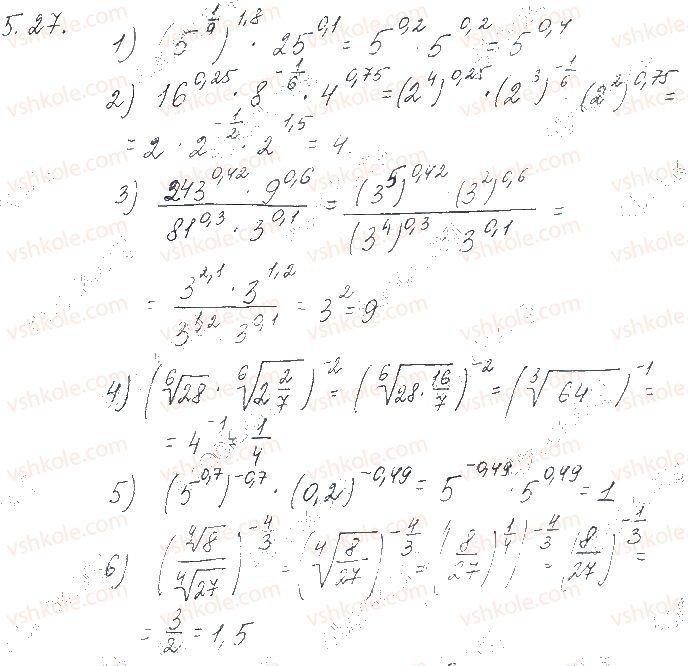 5.27.
1) (5^{-1/9})^{1,8} · 25^{0,1} = 5^{0,2} · 5^{0,2} = 5^{0,4}
2) 16^{0,25} · 8^{-1/6} · 4^{0,75} = (2^4)^{0,25} · (2^3)^{-1/6} (2^2)^{0,75} =
= 2 · 2^{-1/2} · 2^{1,5} = 4.
3) \frac{243^{0,42} · 9^{0,6}}{81^{0,3} · 3^{0,1}} = \frac{(3^5)^{0,42} · (3^2)^{0,6}}{(3^4)^{0,3} · 3^{0,1}} =
= \frac{3^{2,1} · 3^{1,2}}{3^{1,2} · 3^{0,1}} = 3^2 = 9
4) (\sqrt[6]{28} · \sqrt[6]{2\frac{2}{7}})^{-2} = (\sqrt[6]{28 · \frac{16}{7}})^{-2} = (\sqrt[3]{64})^{-1} =
= 4^{-1} = \frac{1}{4}
5) (5^{-0,7})^{-0,7} · (0,2)^{-0,49} = 5^{-0,49} · 5^{0,49} = 1
6) (\frac{\sqrt[4]{8}}{\sqrt[4]{27}})^{-4/3} = (\sqrt[4]{\frac{8}{27}})^{-4/3} = ((\frac{8}{27})^{1/4})^{-4/3} = (\frac{8}{27})^{-1/3} =
= \frac{3}{2} = 1,5